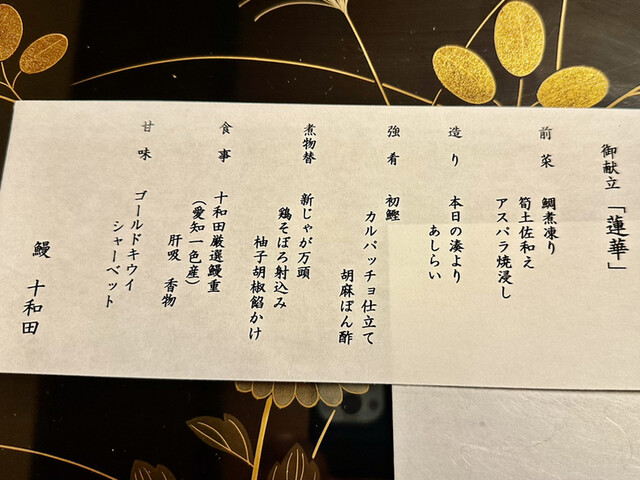 御献立 「蓮華」
前菜 鯛煮凍り
筍土佐和え
アスパラ焼浸し
造り 本日の湊より
あしらい
強肴 初鰹
カルパッチョ仕立て
胡麻ぽん酢
煮物替 新じゃが万頭
鶏そぼろ射込み
柚子胡椒餡かけ
食事 十和田厳選鰻重
(愛知一色産)
肝吸 香物
甘味 ゴールドキウイ
シャーベット
鰻 十和田